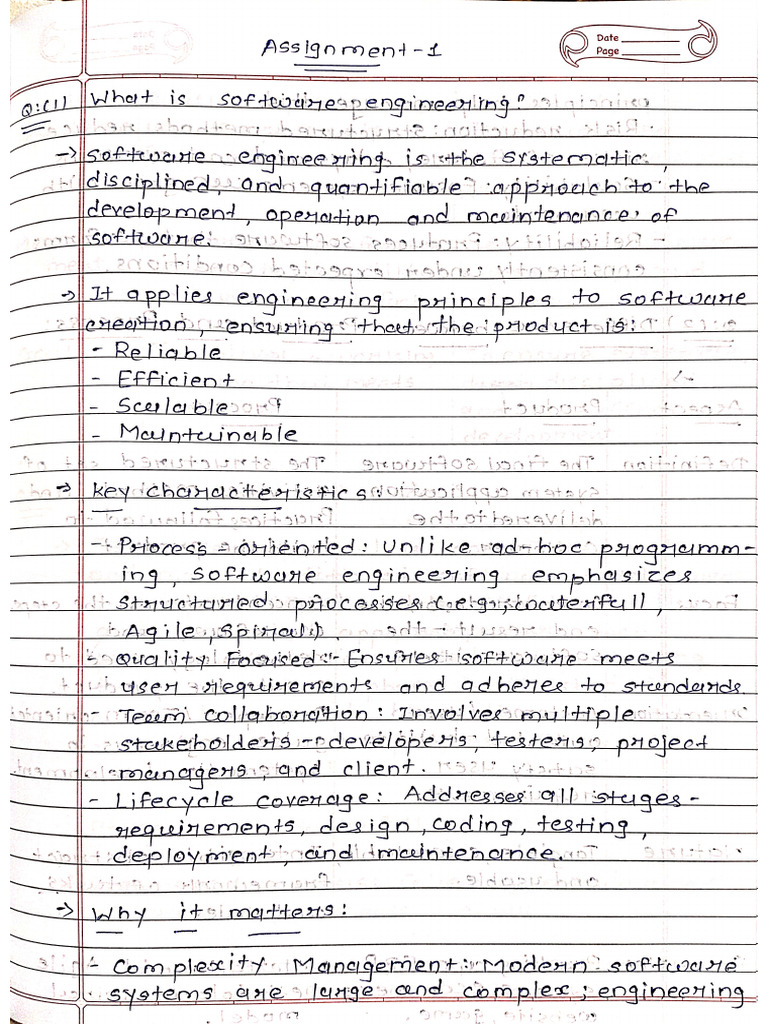 Assignment-1
Date
Page
Q:(1) What is software engineering?
→ software engineering is the systematic,
disciplined, and quantifiable approach to the
development, operation and maintenance of
software.
→ It applies engineering principles to software
creation, ensuring that the product is:
- Reliable
- Efficient
- Scalable
- Maintainable
→ key characteristics:
- Process-oriented: Unlike ad-hoc programm-
ing, software engineering emphasizes
structured processes (e.g., waterfall,
Agile, Spiral)
- Quality Focused:- Ensures software meets
user requirements and adheres to standards.
- Team collaboration: Involves multiple
stakeholders - developers, testers, project
managers, and client.
- Lifecycle coverage: Addresses all stages-
requirements, design, coding, testing,
deployment, and maintenance.
→ Why it matters:
- Complexity Management: Modern software
systems are large and complex; engineering